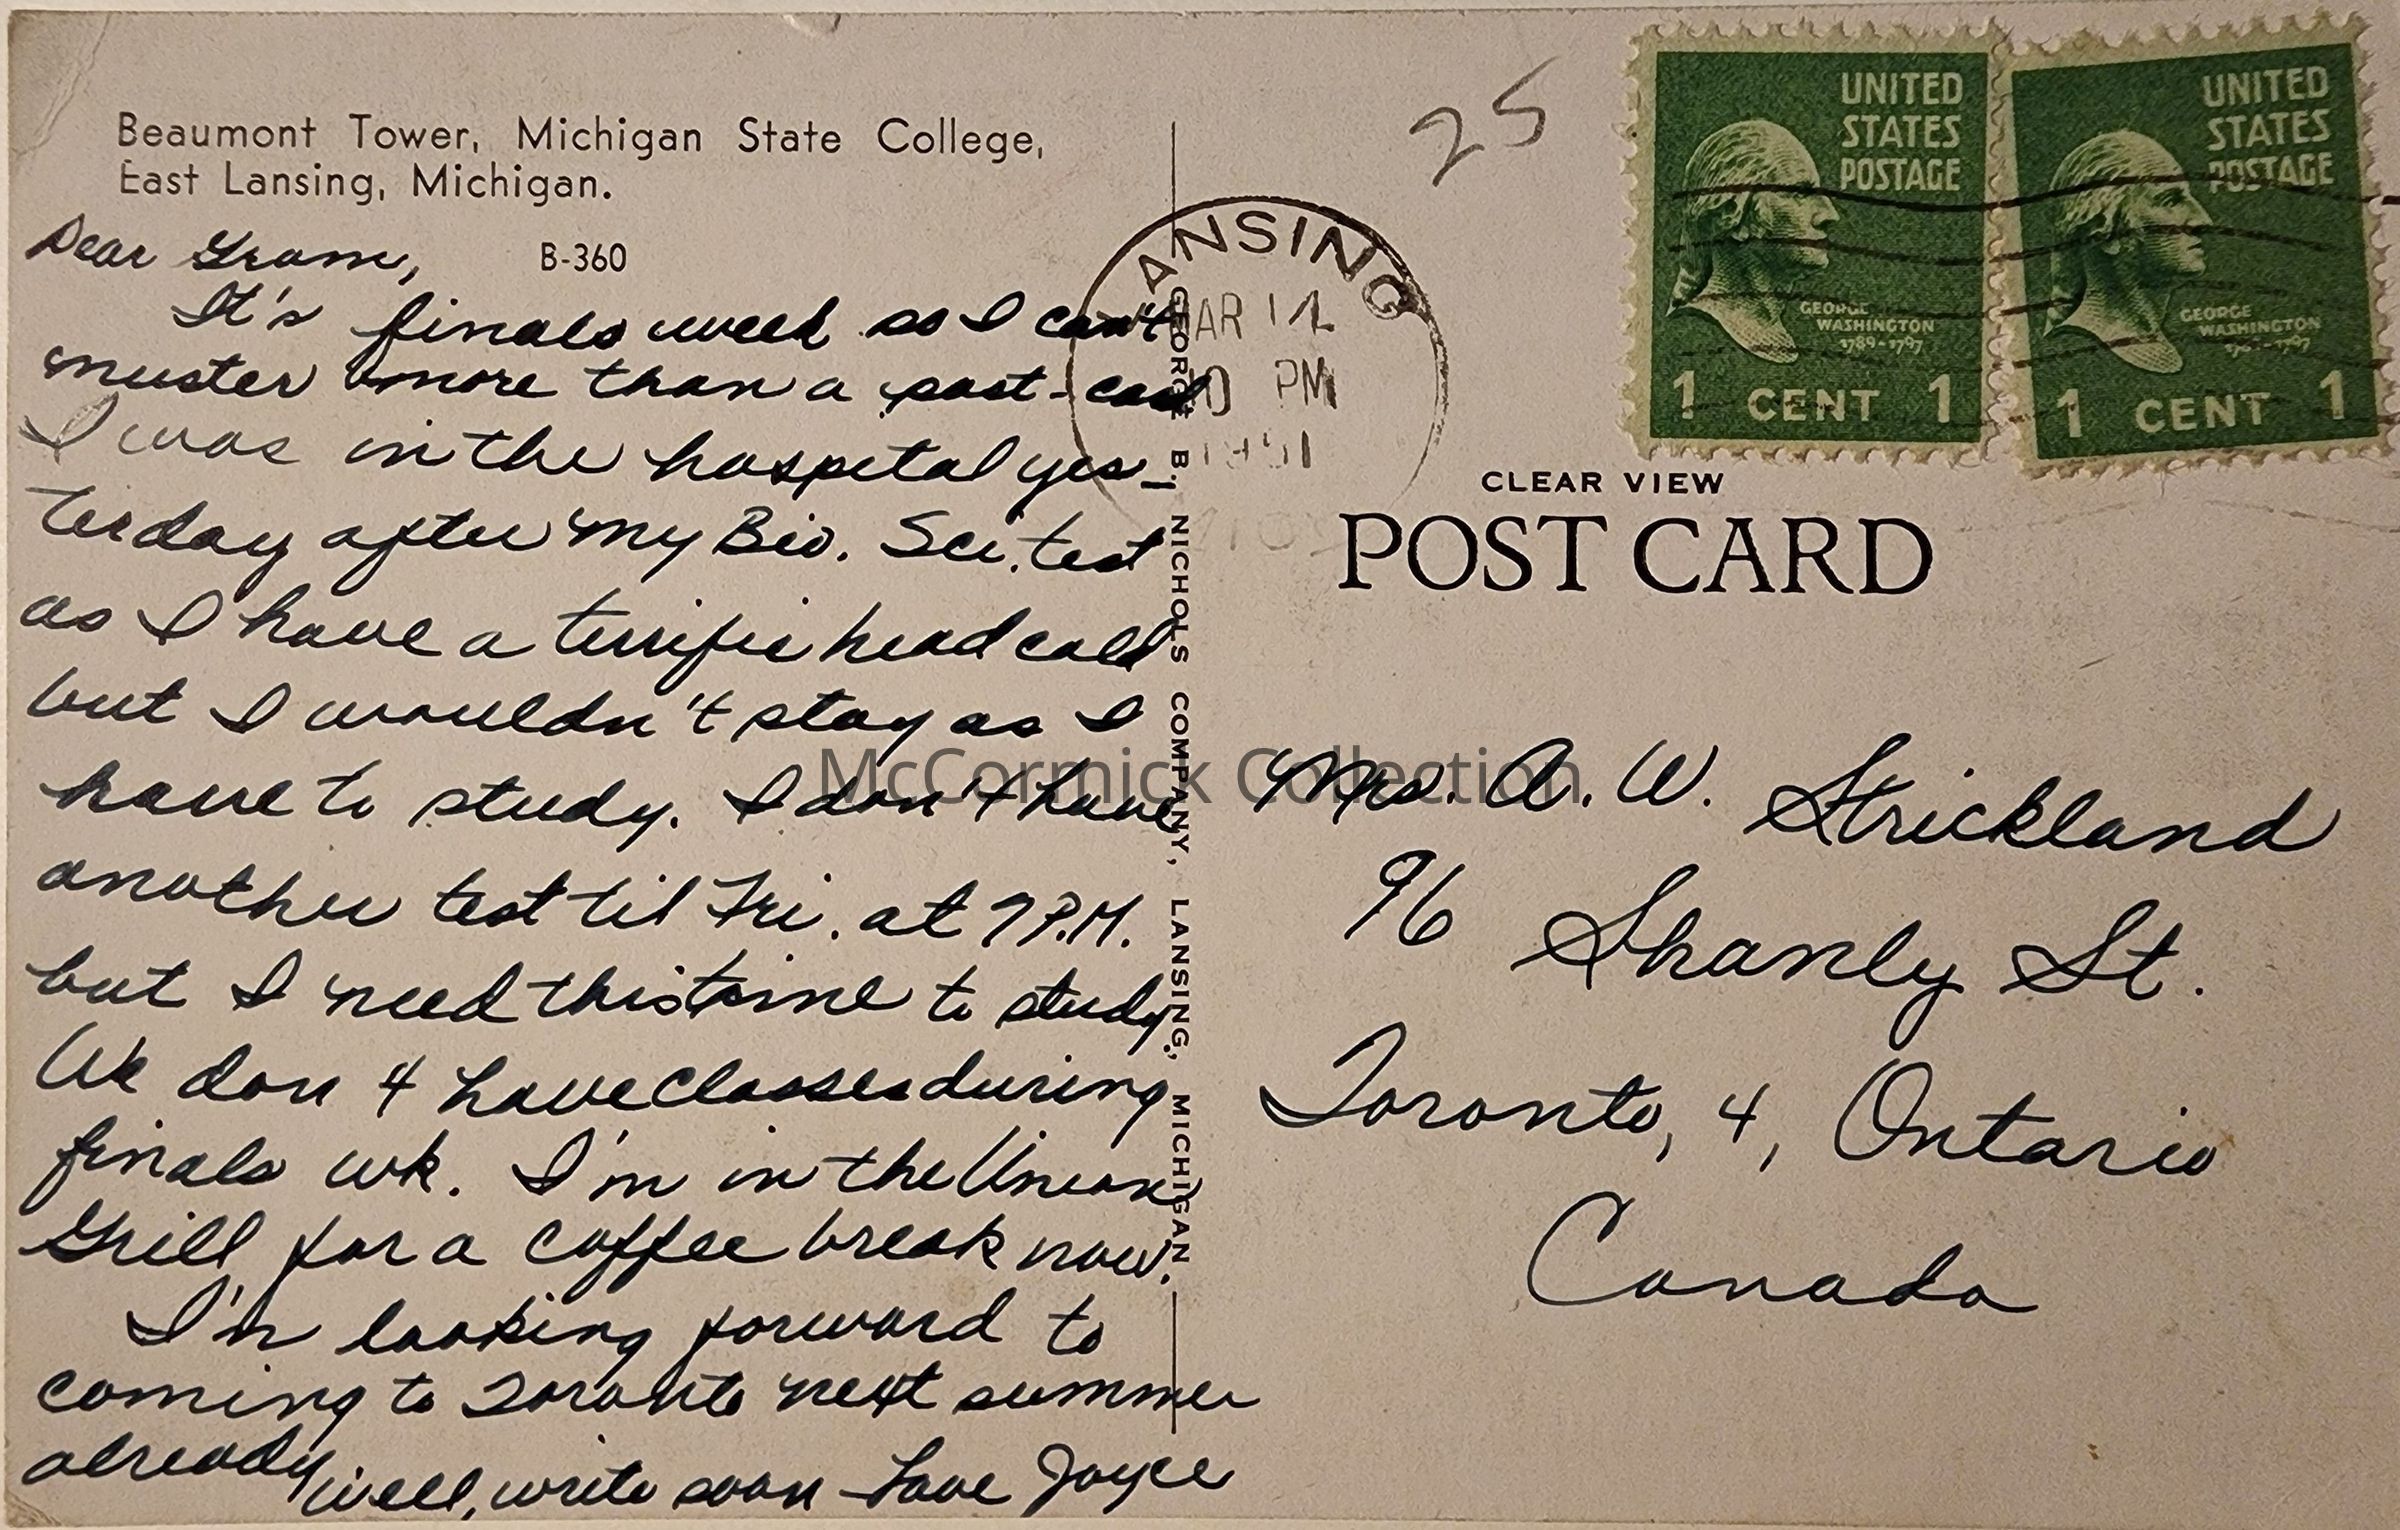 Beaumont Tower, Michigan State College,
East Lansing, Michigan.
B-360
Dear Gram,
It's finals week so I can't
muster more than a post-card
I was in the hospital yes-
terday after my Bio. Sci. test
as I have a terrific head cold
but I wouldn't stay as I
have to study. I don't have
another test til Fri. at 7 P.M.
but I need this time to study.
We don't have classes during
finals wk. I'm in the Union
Grill for a coffee break now.
I'm looking forward to
coming to Toronto next summer
already
Well, write soon - Love Joyce
GEORGE B. NICHOLS COMPANY, LANSING, MICHIGAN
ANSING
AR 14
PM
1951
25
UNITED
STATES
POSTAGE
GEORGE
WASHINGTON
1789-1797
1 CENT 1
UNITED
STATES
POSTAGE
GEORGE
WASHINGTON
1789-1797
1 CENT 1
CLEAR VIEW
POST CARD
McCormick Collection
Mrs. A. W. Strickland
96 Shanly St.
Toronto, 4, Ontario
Canada